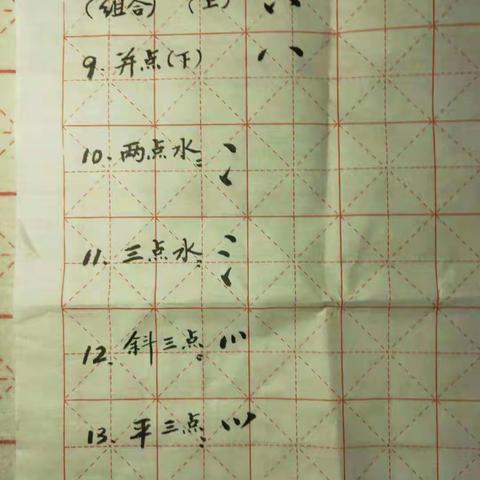 (组合) (上)
9. 并点(下)
10. 两点水:
11. 三点水:
12. 斜三点:
13. 平三点: